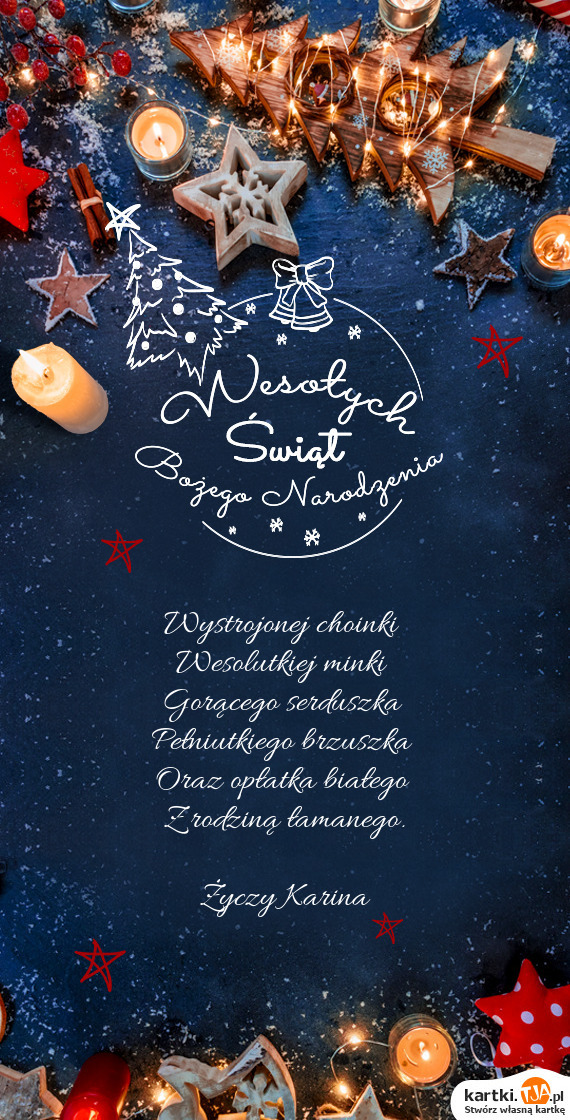 Wesołych
Świąt
Bożego Narodzenia
Wystrojonej choinki
Wesolutkiej minki
Gorącego serduszka
Pełniutkiego brzuszka
Oraz opłatka białego
Z rodziną łamanego.
Życzy Karina
kartki.TJA.pl
Stwórz własną kartkę